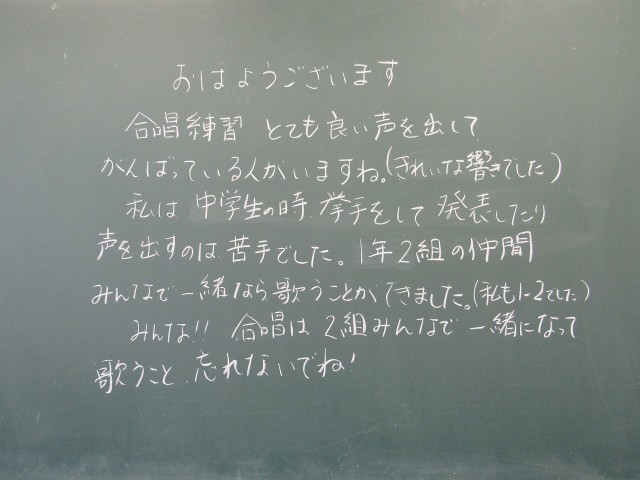 おはようございます
合唱練習 とても良い声を出して
がんばっている人がいますね。(きれいな響きでした)
私は 中学生の時 挙手をして 発表したり
声を出すのは 苦手でした。1年2組の仲間
みんなで一緒なら歌うことができました。(私も1-2でした)
みんな!! 合唱は 2組みんなで 一緒になって
歌うこと 忘れないでね!